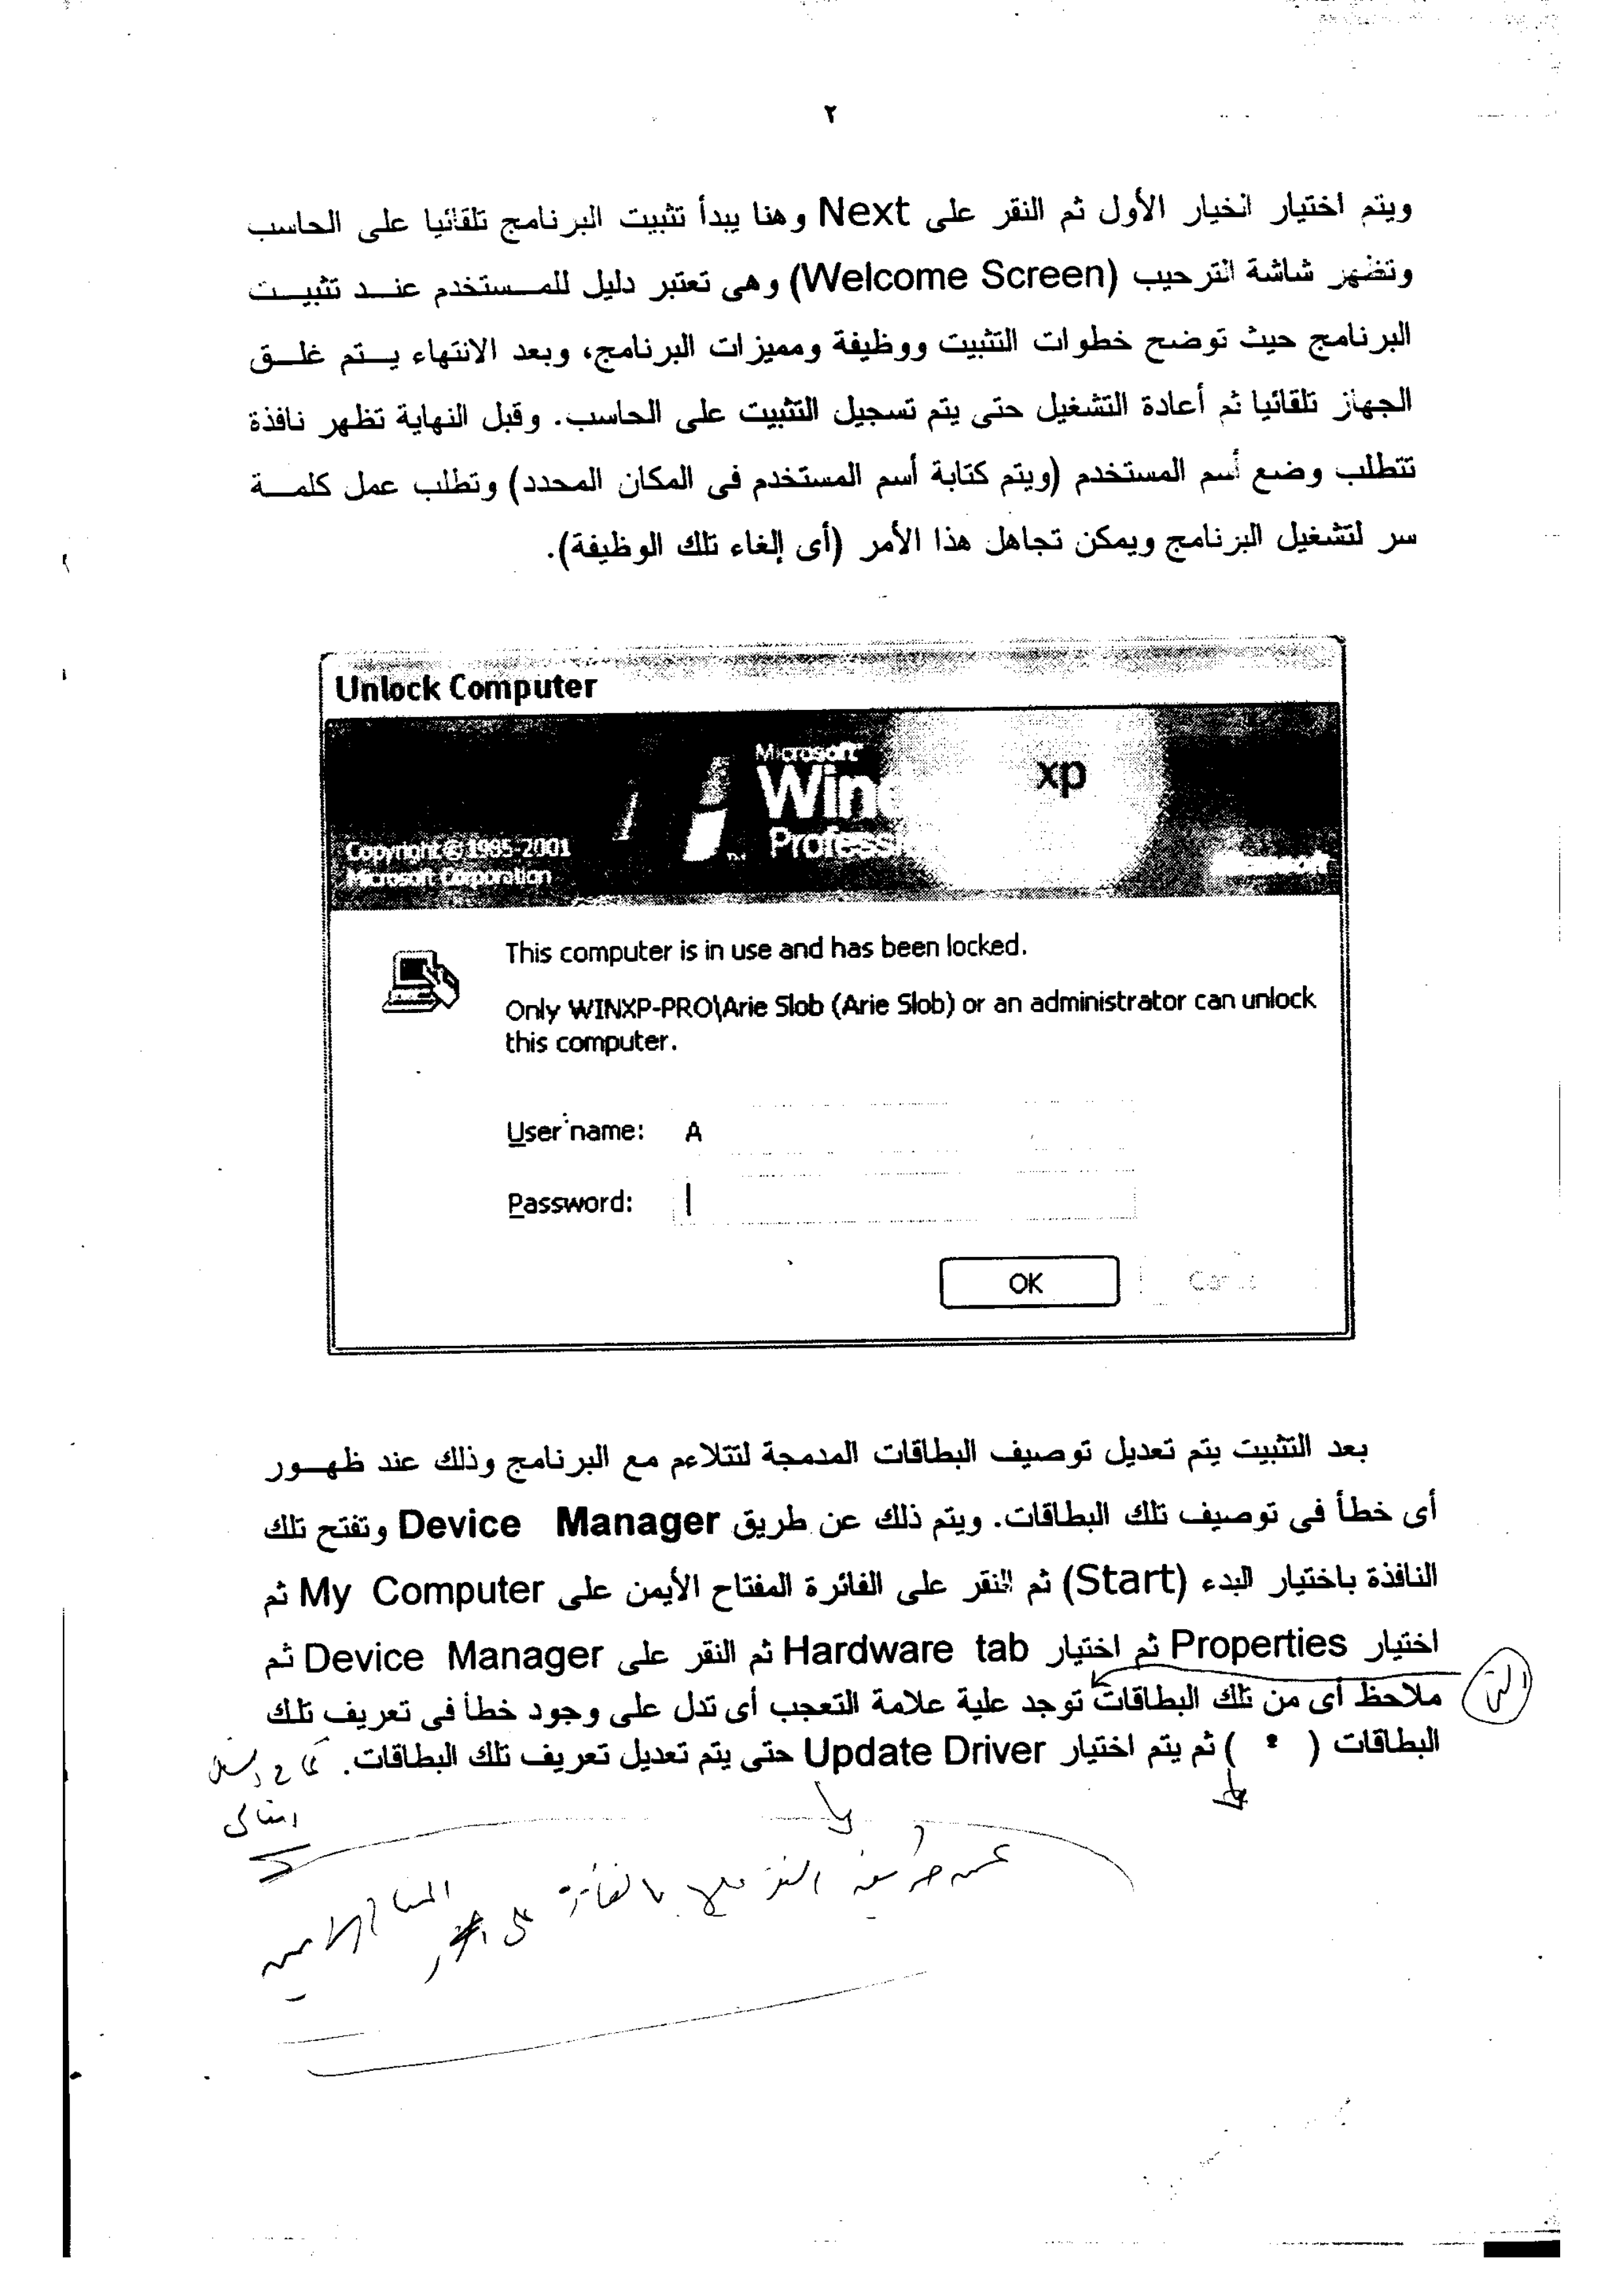 ٢
ويتم اختيار الخيار الأول ثم النقر على Next وهنا يبدأ تثبيت البرنامج تلقائيا على الحاسب
وتظهر شاشة الترحيب (Welcome Screen) وهى تعتبر دليل للمستخدم عند تثبيت
البرنامج حيث توضح خطوات التثبيت ووظيفة ومميزات البرنامج، وبعد الانتهاء يتم غلق
الجهاز تلقائيا ثم أعادة التشغيل حتى يتم تسجيل التثبيت على الحاسب. وقبل النهاية تظهر نافذة
تتطلب وضع أسم المستخدم (ويتم كتابة أسم المستخدم فى المكان المحدد) وتطلب عمل كلمة
سر لتشغيل البرنامج ويمكن تجاهل هذا الأمر (أى إلغاء تلك الوظيفة).
Unlock Computer
Microsoft
xp
Copyright © 1985-2001
Microsoft Corporation
Microsoft
This computer is in use and has been locked.
Only WINXP-PRO\Arie Slob (Arie Slob) or an administrator can unlock
this computer.
User name: A
Password:
OK
بعد التثبيت يتم تعديل توصيف البطاقات المدمجة لتتلاءم مع البرنامج وذلك عند ظهور
أى خطأ فى توصيف تلك البطاقات. ويتم ذلك عن طريق Device Manager وتفتح تلك
النافذة باختيار البدء (Start) ثم النقر على الفائرة المفتاح الأيمن على My Computer ثم
اختيار Properties ثم اختيار Hardware tab ثم النقر على Device Manager ثم
ملاحظ أى من تلك البطاقات توجد علية علامة التعجب أى تدل على وجود خطأ فى تعريف تلك
التى
البطاقات ( ) ثم يتم اختيار Update Driver حتى يتم تعديل تعريف تلك البطاقات.
عن طريق النقر بالفائرة على